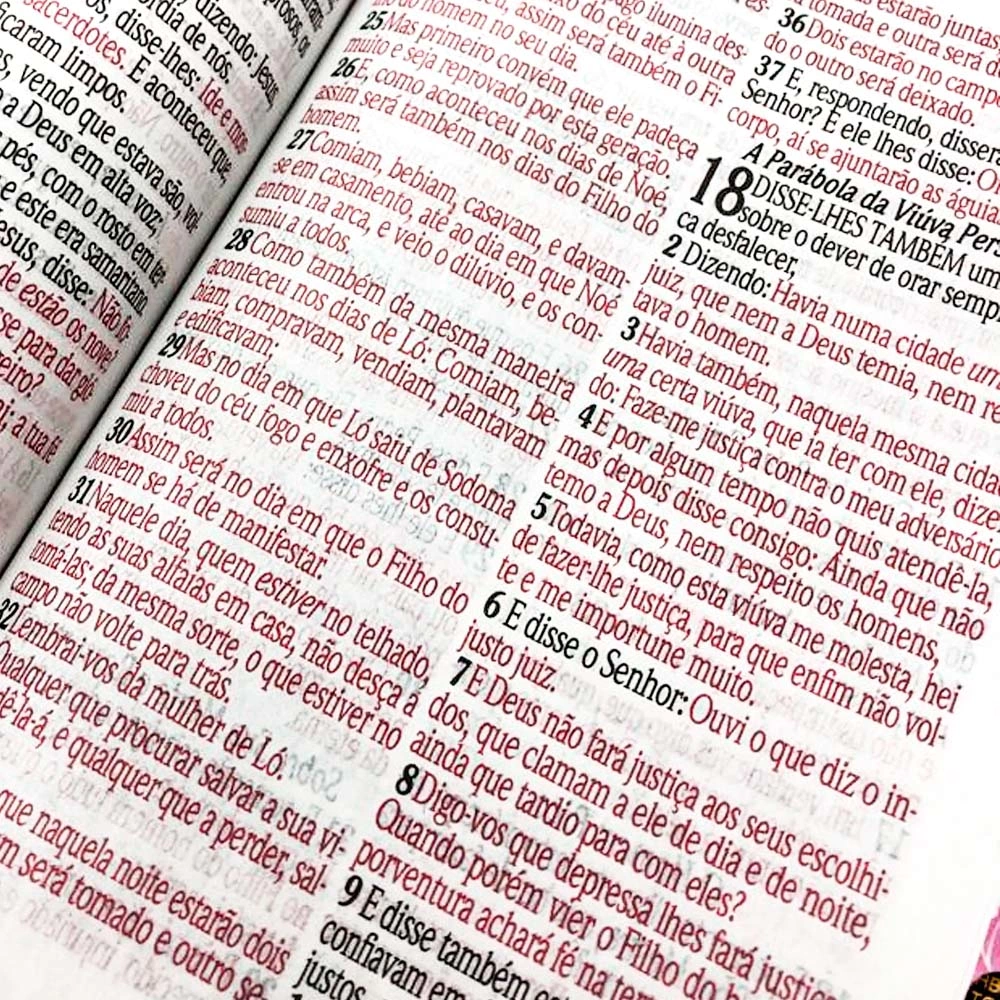 dizendo: Jesus,
os, disse-lhes: Ide e mos-
sacerdotes. E aconteceu que,
ficaram limpos.
s, vendo que estava são, vol-
a Deus em alta voz;
pés, com o rosto em ter-
e este era samaritano.
esus, disse: Não fo-
de estão os nove?
sse para dar gló-
reiro?
a tua fé
ago ilumina des-
xo do céu até à outra
u, assim será também o Fi-
do homem no seu dia.
25 Mas primeiro convém que ele padeça
muito e seja reprovado por esta geração.
26 E, como aconteceu nos dias de Noé,
assim será também nos dias do Filho do
homem.
27 Comiam, bebiam, casavam, e davam-
se em casamento, até ao dia em que Noé
entrou na arca, e veio o dilúvio, e os con-
sumiu a todos.
28 Como também da mesma maneira
aconteceu nos dias de Ló: Comiam, be-
biam, compravam, vendiam, plantavam
e edificavam;
29 Mas no dia em que Ló saiu de Sodoma
choveu do céu fogo e enxofre e os consu-
miu a todos.
30 Assim será no dia em que o Filho do
homem se há de manifestar.
31 Naquele dia, quem estiver no telhado,
tendo as suas alfaias em casa, não desça a
tomá-las; da mesma sorte, o que estiver no
campo não volte para trás.
32 Lembrai-vos da mulher de Ló.
Qualquer que procurar salvar a sua vi-
dê-la-á, e qualquer que a perder, sal-
que naquela noite estarão dois
m será tomado e outro se
s estarão juntas
tomada e outra será d
36 Dois estarão no campo
do o outro será deixado.
37 E, respondendo, dissera
Senhor? E ele lhes disse: O
corpo, aí se ajuntarão as águia
A Parábola da Viúva Pers
18 DISSE-LHES TAMBÉM um
sobre o dever de orar semp
ca desfalecer,
2 Dizendo: Havia numa cidade um
juiz, que nem a Deus temia, nem re
tava o homem.
3 Havia também, naquela mesma cida
uma certa viúva, que ia ter com ele, dize
do: Faze-me justiça contra o meu adversário
4 E por algum tempo não quis atendê-la,
mas depois disse consigo: Ainda que não
temo a Deus, nem respeito os homens,
5 Todavia, como esta viúva me molesta, hei
de fazer-lhe justiça, para que enfim não vol-
te e me importune muito.
6 E disse o Senhor: Ouvi o que diz o in-
justo juiz.
7 E Deus não fará justiça aos seus escolhi-
dos, que clamam a ele de dia e de noite,
ainda que tardio para com eles?
8 Digo-vos que depressa lhes fará justiça
Quando porém vier o Filho do h
porventura achará fé na ter
9 E disse também
confiavam em
justos